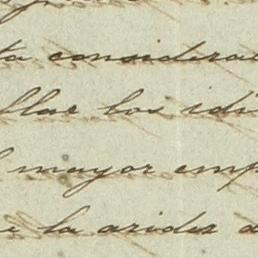 ta considera
llar los idi
l mayor emp
e la aridez d